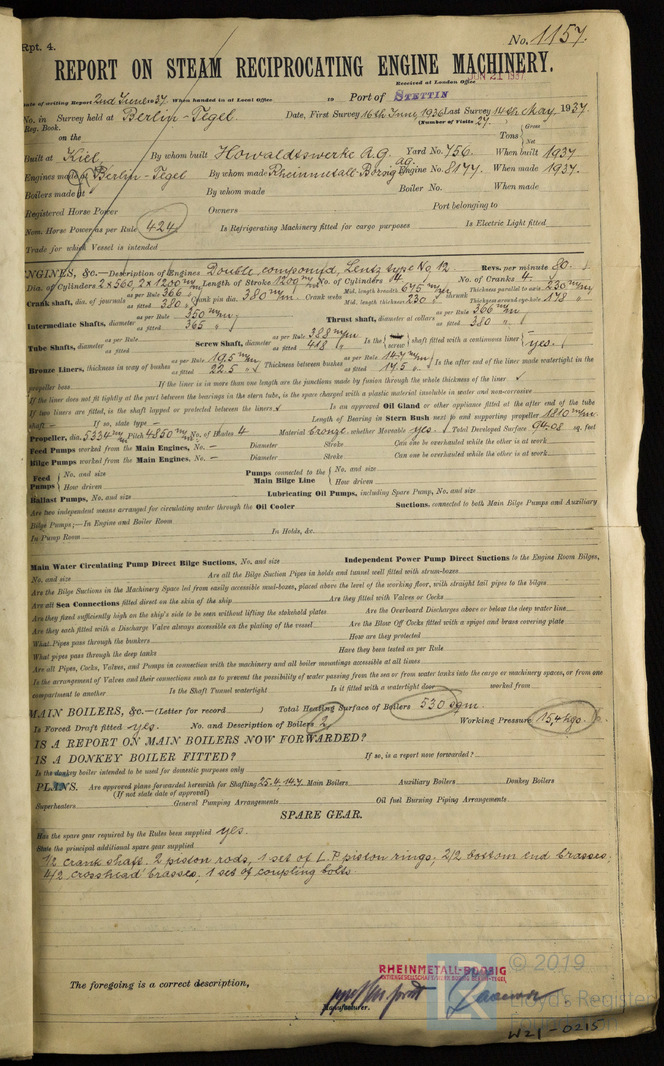 Rpt. 4.
No. 1157.
REPORT ON STEAM RECIPROCATING ENGINE MACHINERY.
Received at London Office JUN 21 1937
Date of writing Report 2nd June 1937 When handed in at Local Office 19 Port of STETTIN
No. in Survey held at Berlin-Tegel. Date, First Survey 16th June, 1936 Last Survey 14th May 1937
Reg. Book. (Number of Visits 27.)
on the Tons { Gross Net
Built at Kiel. By whom built Howaldtswerke A.G. Yard No. 756. When built 1937
Engines made at Berlin-Tegel By whom made Rheinmetall Borsig A.G. Engine No. 8177. When made 1937.
Boilers made at By whom made Boiler No. When made
Registered Horse Power Owners Port belonging to
Nom. Horse Power as per Rule 424 Is Refrigerating Machinery fitted for cargo purposes Is Electric Light fitted
Trade for which Vessel is intended
ENGINES, &c.—Description of Engines Double compound, Lentz type No 12. Revs. per minute 80.
Dia. of Cylinders 2 x 560, 2 x 1200 m/m Length of Stroke 1200 m/m No. of Cylinders 4 No. of Cranks 4
Crank shaft, dia. of journals as per Rule 366 as fitted 380 Crank pin dia. 380 m/m Crank webs Mid. length breadth 675 m/m Mid. length thickness 230 shrunk Thickness parallel to axis 230 m/m Thickness around eye-hole 178
Intermediate Shafts, diameter as per Rule 350 m/m as fitted 365 Thrust shaft, diameter at collars as per Rule 366 m/m as fitted 380
Tube Shafts, diameter as per Rule as fitted Screw Shaft, diameter as per Rule 388 m/m as fitted 418 Is the screw shaft fitted with a continuous liner { yes. }
Bronze Liners, thickness in way of bushes as per Rule 19.5 m/m as fitted 22.5 Thickness between bushes as per Rule 14.7 m/m as fitted 17.5 Is the after end of the liner made watertight in the
propeller boss If the liner is in more than one length are the junctions made by fusion through the whole thickness of the liner
If the liner does not fit tightly at the part between the bearings in the stern tube, is the space charged with a plastic material insoluble in water and non-corrosive
If two liners are fitted, is the shaft lapped or protected between the liners Is an approved Oil Gland or other appliance fitted at the after end of the tube
shaft — If so, state type — Length of Bearing in Stern Bush next to and supporting propeller 1810 m/m
Propeller, dia. 5334 m/m Pitch 4850 m/m No. of Blades 4 Material bronze. whether Moveable yes. Total Developed Surface 94.08 sq. feet
Feed Pumps worked from the Main Engines, No. — Diameter Stroke Can one be overhauled while the other is at work
Bilge Pumps worked from the Main Engines, No. — Diameter Stroke Can one be overhauled while the other is at work
Feed Pumps { No. and size Pumps connected to the Main Bilge Line { No. and size
How driven How driven
Ballast Pumps, No. and size Lubricating Oil Pumps, including Spare Pump, No. and size
Are two independent means arranged for circulating water through the Oil Cooler Suctions, connected to both Main Bilge Pumps and Auxiliary
Bilge Pumps;—In Engine and Boiler Room
In Pump Room In Holds, &c.
Main Water Circulating Pump Direct Bilge Suctions, No. and size Independent Power Pump Direct Suctions to the Engine Room Bilges,
No. and size Are all the Bilge Suction Pipes in holds and tunnel well fitted with strum-boxes
Are the Bilge Suctions in the Machinery Space led from easily accessible mud-boxes, placed above the level of the working floor, with straight tail pipes to the bilges
Are all Sea Connections fitted direct on the skin of the ship Are they fitted with Valves or Cocks
Are they fixed sufficiently high on the ship's side to be seen without lifting the stokehold plates Are the Overboard Discharges above or below the deep water line
Are they each fitted with a Discharge Valve always accessible on the plating of the vessel Are the Blow Off Cocks fitted with a spigot and brass covering plate
What Pipes pass through the bunkers How are they protected
What pipes pass through the deep tanks Have they been tested as per Rule
Are all Pipes, Cocks, Valves, and Pumps in connection with the machinery and all boiler mountings accessible at all times
Is the arrangement of Valves and their connections such as to prevent the possibility of water passing from the sea or from water tanks into the cargo or machinery spaces, or from one
compartment to another Is the Shaft Tunnel watertight Is it fitted with a watertight door worked from
MAIN BOILERS, &c.—(Letter for record ) Total Heating Surface of Boilers 530 sqm.
Is Forced Draft fitted yes. No. and Description of Boilers 2 Working Pressure 15,4 kgs.
IS A REPORT ON MAIN BOILERS NOW FORWARDED?
IS A DONKEY BOILER FITTED? If so, is a report now forwarded?
Is the donkey boiler intended to be used for domestic purposes only
PLANS. Are approved plans forwarded herewith for Shafting Main Boilers Auxiliary Boilers Donkey Boilers
(If not state date of approval)
Superheaters General Pumping Arrangements Oil fuel Burning Piping Arrangements
SPARE GEAR.
Has the spare gear required by the Rules been supplied yes.
State the principal additional spare gear supplied
1/2 crank shaft. 2 piston rods, 1 set of L.P. piston rings; 2/2 bottom end brasses;
4/2 crosshead brasses, 1 set of coupling bolts
RHEINMETALL-BORSIG
AKTIENGESELLSCHAFT WERK BORSIG BERLIN-TEGEL
The foregoing is a correct description,
Manufacturer.
© 2019
Lloyd's Register
W21-0215